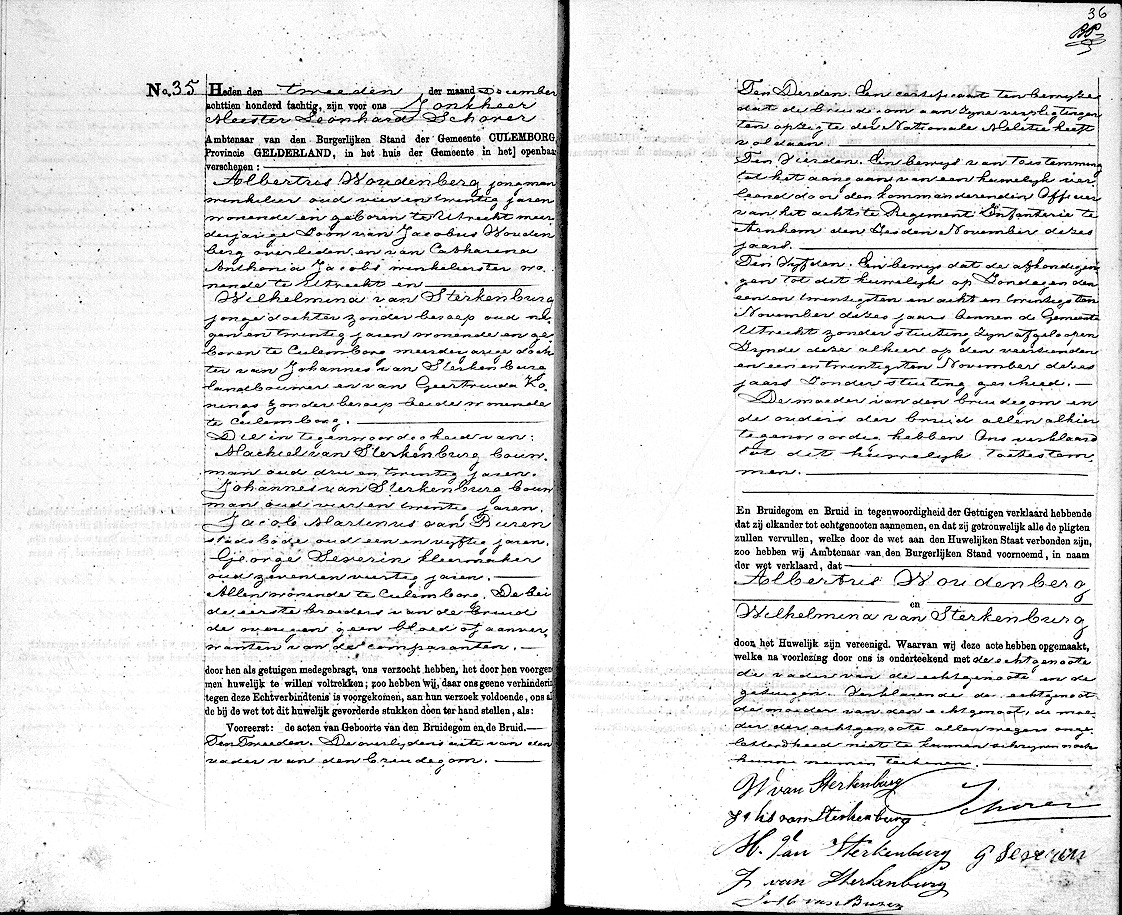 No. 35
Heden den tweeden der maand December
achttien honderd tachtig, zijn voor ons Jonkheer
Meester Leonhard Schorer
Ambtenaar van den Burgerlijken Stand der Gemeente CULEMBORG,
Provincie GELDERLAND, in het huis der Gemeente in het] openbaa
verschenen :
Albertus Woudenberg jongman
winkelier oud vier en twintig jaren
wonende en geboren te Utrecht meer
derjarige Zoon van Jacobus Wouden
berg overleden en van Catharina
Anthonia Jacobs winkelierster wo
nende te Utrecht en
Wilhelmina van Sterkenburg
jonge dochter zonder beroep oud ne
gen en twintig jaren wonende en ge
boren te Culemborg meerderjarige doch
ter van Johannes van Sterkenburg
landbouwer en van Geertruida Ko
nings zonder beroep beide wonende
te Culemborg.
Die in tegenwoordigheid van:
Machiel van Sterkenburg bouw
man oud drie en twintig jaren.
Johannes van Sterkenburg bouw
man oud vier en twintig jaren.
Jacob Martinus van Buren
stadsbode oud een en vijftig jaren.
George Severin kleermaker
oud zeven en veertig jaren.
Allen wonende te Culemborg. De bei
de eerste broeders van de bruid
de overigen geen bloed of aanver
wanten van de comparanten.
door hen als getuigen medegebragt, ons verzocht hebben, het door hen voorgen
men huwelijk te willen voltrekken; zoo hebben wij, daar ons geene verhinderin
tegen deze Echtverbindtenis is voorgekomen, aan hun verzoek voldoende, ons al
de bij de wet tot dit huwelijk gevorderde stukken doen ter hand stellen, als:
Vooreerst: de acten van Geboorte van den Bruidegom en de Bruid.
Ten Tweeden. De overlijdens acte van den
vader van den bruidegom.
36
Ten Derden. Een certificaat ten bewijze
dat de bruidegom aan zijne verpligtingen
ten opzigte der Nationale Militie heeft
voldaan.
Ten Vierden. Een bewijs van toestemming
tot het aangaan van een huwelijk ver
leend door den kommanderenden Officier
van het achtste Regiment Infanterie te
Arnhem den Zesden November dezes
jaars.
Ten Vijfden. Een bewijs dat de afkondigin
gen tot dit huwelijk op Zondagen den
een en twintigsten en acht en twintigsten
November dezes jaars binnen de Gemeente
Utrecht zonder stuiting zijn afgeloopen
Zijnde deze alhier op den veertienden
en een en twintigsten November dezes
jaars zonder stuiting geschied.
De moeder van den bruidegom en
de ouders der bruid allen alhier
tegenwoordig hebben Ons verklaard
tot dit huwelijk toetestem
men.
En Bruidegom en Bruid in tegenwoordigheid der Getuigen verklaard hebbende
dat zij elkander tot echtgenooten aannemen, en dat zij getrouwelijk alle de pligten
zullen vervullen, welke door de wet aan den Huwelijken Staat verbonden zijn,
zoo hebben wij Ambtenaar van den Burgerlijken Stand voornoemd, in naam
der wet verklaard, dat
Albertus Woudenberg
en
Wilhelmina van Sterkenburg
door het Huwelijk zijn vereenigd. Waarvan wij deze acte hebben opgemaakt,
welke na voorlezing door ons is onderteekend met de echtgenoote
de vader van de echtgenoote en de
getuigen. Verklarende de echtgenoot
de moeder van den echtgenoot, de moe
der der echtgenoote allen wegens onge
letterdheid niet te kunnen schrijven noch
hunne namen teekenen.
W van Sterkenburg
Schorer
van Sterkenburg
M. van Sterkenburg G Severin
J van Sterkenburg
van Buren